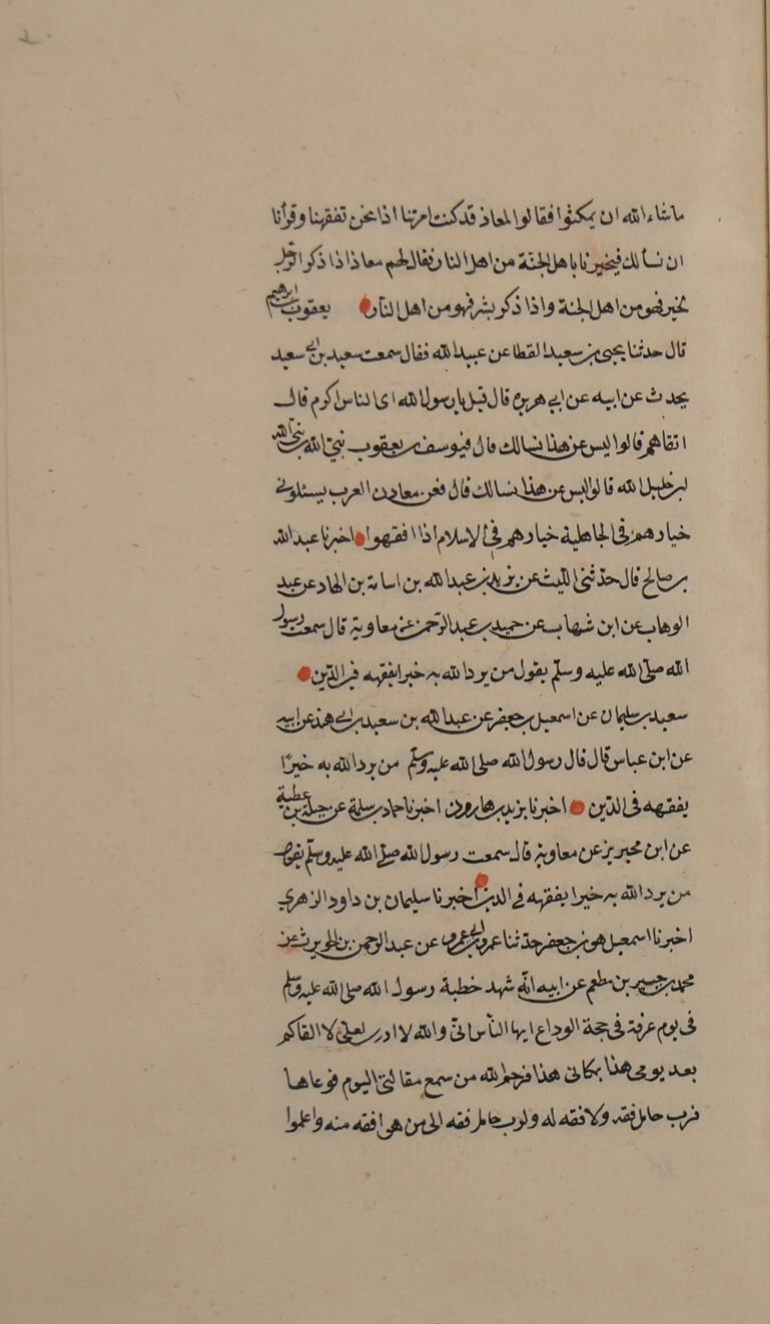 ماشاء الله ان يمكثوا فقالوا لمعاذ قد كنت امرتنا اذا نحن تفقهنا وقرأنا
ان نسألك فيخبرنا باهل الجنة من اهل النار فقال لهم معاذ اذا ذكر الرجل
بخير فهو من اهل الجنة واذا ذكر بشر فهو من اهل النار يعقوب بن ابرهيم
قال حدثنا يحيى بن سعيد القطا عن عبيد الله فقال سمعت سعيد بن ابي سعيد
يحدث عن ابيه عن ابي هريره قال قيل يا رسول الله اى الناس اكرم قال
اتقاهم قالوا ليس عن هذا نسالك قال فيوسف بن يعقوب نبي الله بن نبي الله
ابن خليل الله قالوا ليس عن هذا نسالك قال فعن معادن العرب يسئلونى
خيارهم فى الجاهلية خيارهم فى الاسلام اذا افقهوا اخبرنا عبد الله
بن صالح قال حدثنى الليث عن يزيد بن عبد الله بن اسامة بن الهاد عن عبد
الوهاب عن ابن شهاب عن حميد بن عبد الرحمن عن معاوية قال سمعت رسول
الله صلى الله عليه وسلم يقول من يرد الله به خيرا يفقهه فى الدين
سعيد بن سليمان عن اسمعيل بن جعفر عن عبد الله بن سعيد بن ابي هند عن ابيه
عن ابن عباس قال قال رسول الله صلى الله عليه وسلم من يرد الله به خيرًا
يفقهه فى الدين اخبرنا يزيد بن هارون اخبرنا حماد بن سلمة عن جبلة بن عطية
عن ابن محيريز عن معاوية قال سمعت رسول الله صلى الله عليه وسلم يقول
من يرد الله به خيرا يفقهه فى الدين اخبرنا سليمان بن داود الزهري
اخبرنا اسمعيل هو بن جعفر حدثنا عمرو بن ابي عمرو عن عبد الرحمن بن الحويرث عن
محمد بن جبير بن مطعم عن ابيه انه شهد خطبة رسول الله صلى الله عليه وسلم
فى يوم عرفة فى حجة الوداع ايها الناس انى والله لا ادرى لعلى لا القاكم
بعد يومى هذا بمكانى هذا فرحم الله من سمع مقالتى اليوم فوعاها
فرب حامل فقه ولا فقه له ولرب حامل فقه الى من هو افقه منه واعلموا